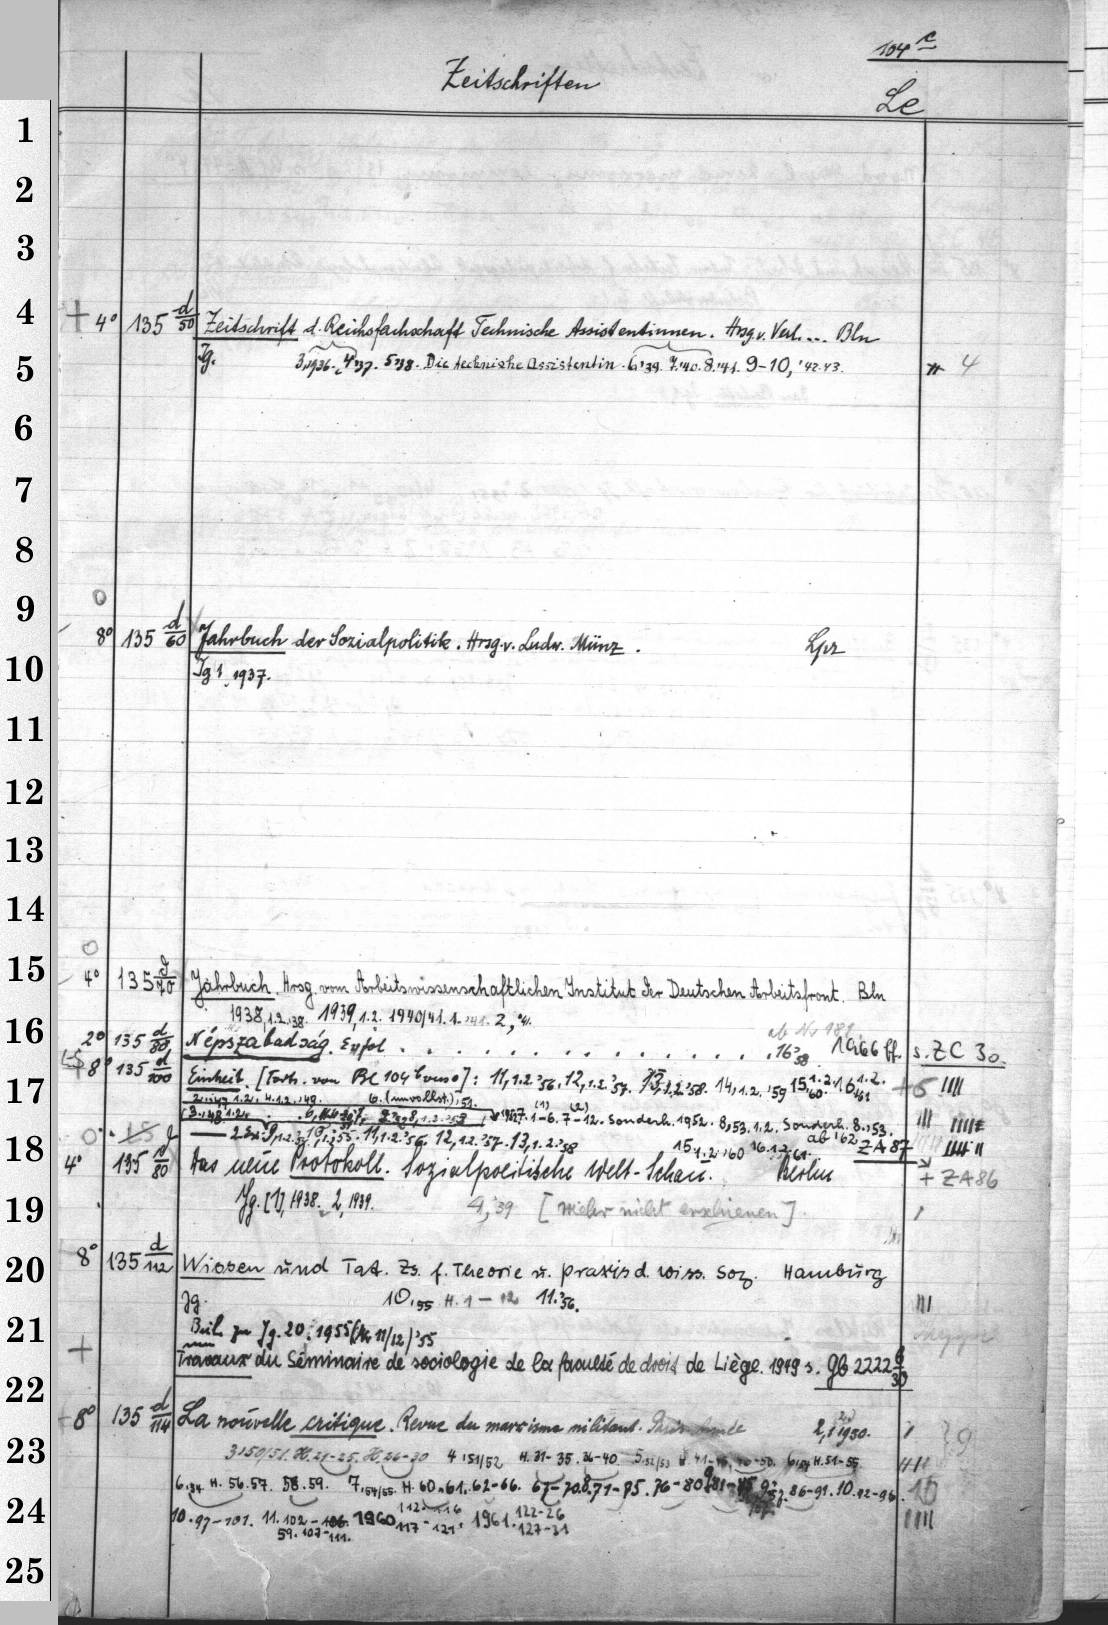 104 c
Zeitschriften
Le
1
2
3
4
+ 4° 135 d/50 Zeitschrift d. Reichsfachschaft Technische Assistentinnen. Hrsg. v. Verl.... Bln
5
Jg. 3,1936. 4,'37. 5,'38. Die technische Assistentin. 6,'39. 7,'40. 8,'41. 9-10, '42.43. 4
6
7
8
9
8° 135 d/60 Jahrbuch der Sozialpolitik. Hrsg. v. Ludw. Münz. Lpz
10
Jg 1, 1937.
11
12
13
14
15
4° 135 d/70 Jahrbuch. Hrsg. vom Arbeitswissenschaftlichen Institut der Deutschen Arbeitsfront. Bln
1938,1.2,'38. 1939,1.2. 1940/41.1.
16
2° 135 d/80 Népszabadság. 1966 ff. s. ZC 30
17
8° 135 d/100 Einheit. [Forts. von Bl 104 b verso]: 11,1.2 '56, 12,1.2 '57. 13,1.2 '58. 14,1.2, '59
6. (unvollst.), '51.
7.1-6. 7-12. Sonderh. 1952. 8,'53.1.2. Sonderh. 8,'53.
18
12,1.2 '57. 13,1.2 '58 ab '62 ZA 87
4° 135 d/80 Das neue Protokoll. Sozialpolitische Welt-Schau. Berlin + ZA 86
19
Jg. [1], 1938. 2, 1939. 4,'39 [mehr nicht erschienen].
20
8° 135 d/112 Wissen und Tat. Zs. f. Theorie u. Praxis d. wiss. Soz. Hamburg
Jg. 10,'55 H. 1-12 11,'56.
21
Beil. zu Jg. 10: 1955 (Nr 11/12) '55
+ Travaux du Séminaire de sociologie de la faculté de droit de Liège. 1949 s. Gb 2222 6/30
22
8° 135 d/114 La nouvelle critique. Revue du marxisme militant. 2, 1950.
23
3,'50/51. H. 21-25. H. 26-30 4,'51/52 H. 31-35. 36-40. 5,'52/53 6,'54 H. 51-55
6,'54 H. 56.57. 58.59. 7,'54/55. H. 60.61. 62-66. 67-70. 8,71-75. 76-80 86-91. 10.92-96. 10
24
10.97-101. 11.102-106 1960 112-116 117-121. 1961. 122-26 127-31
59.107-111.
25